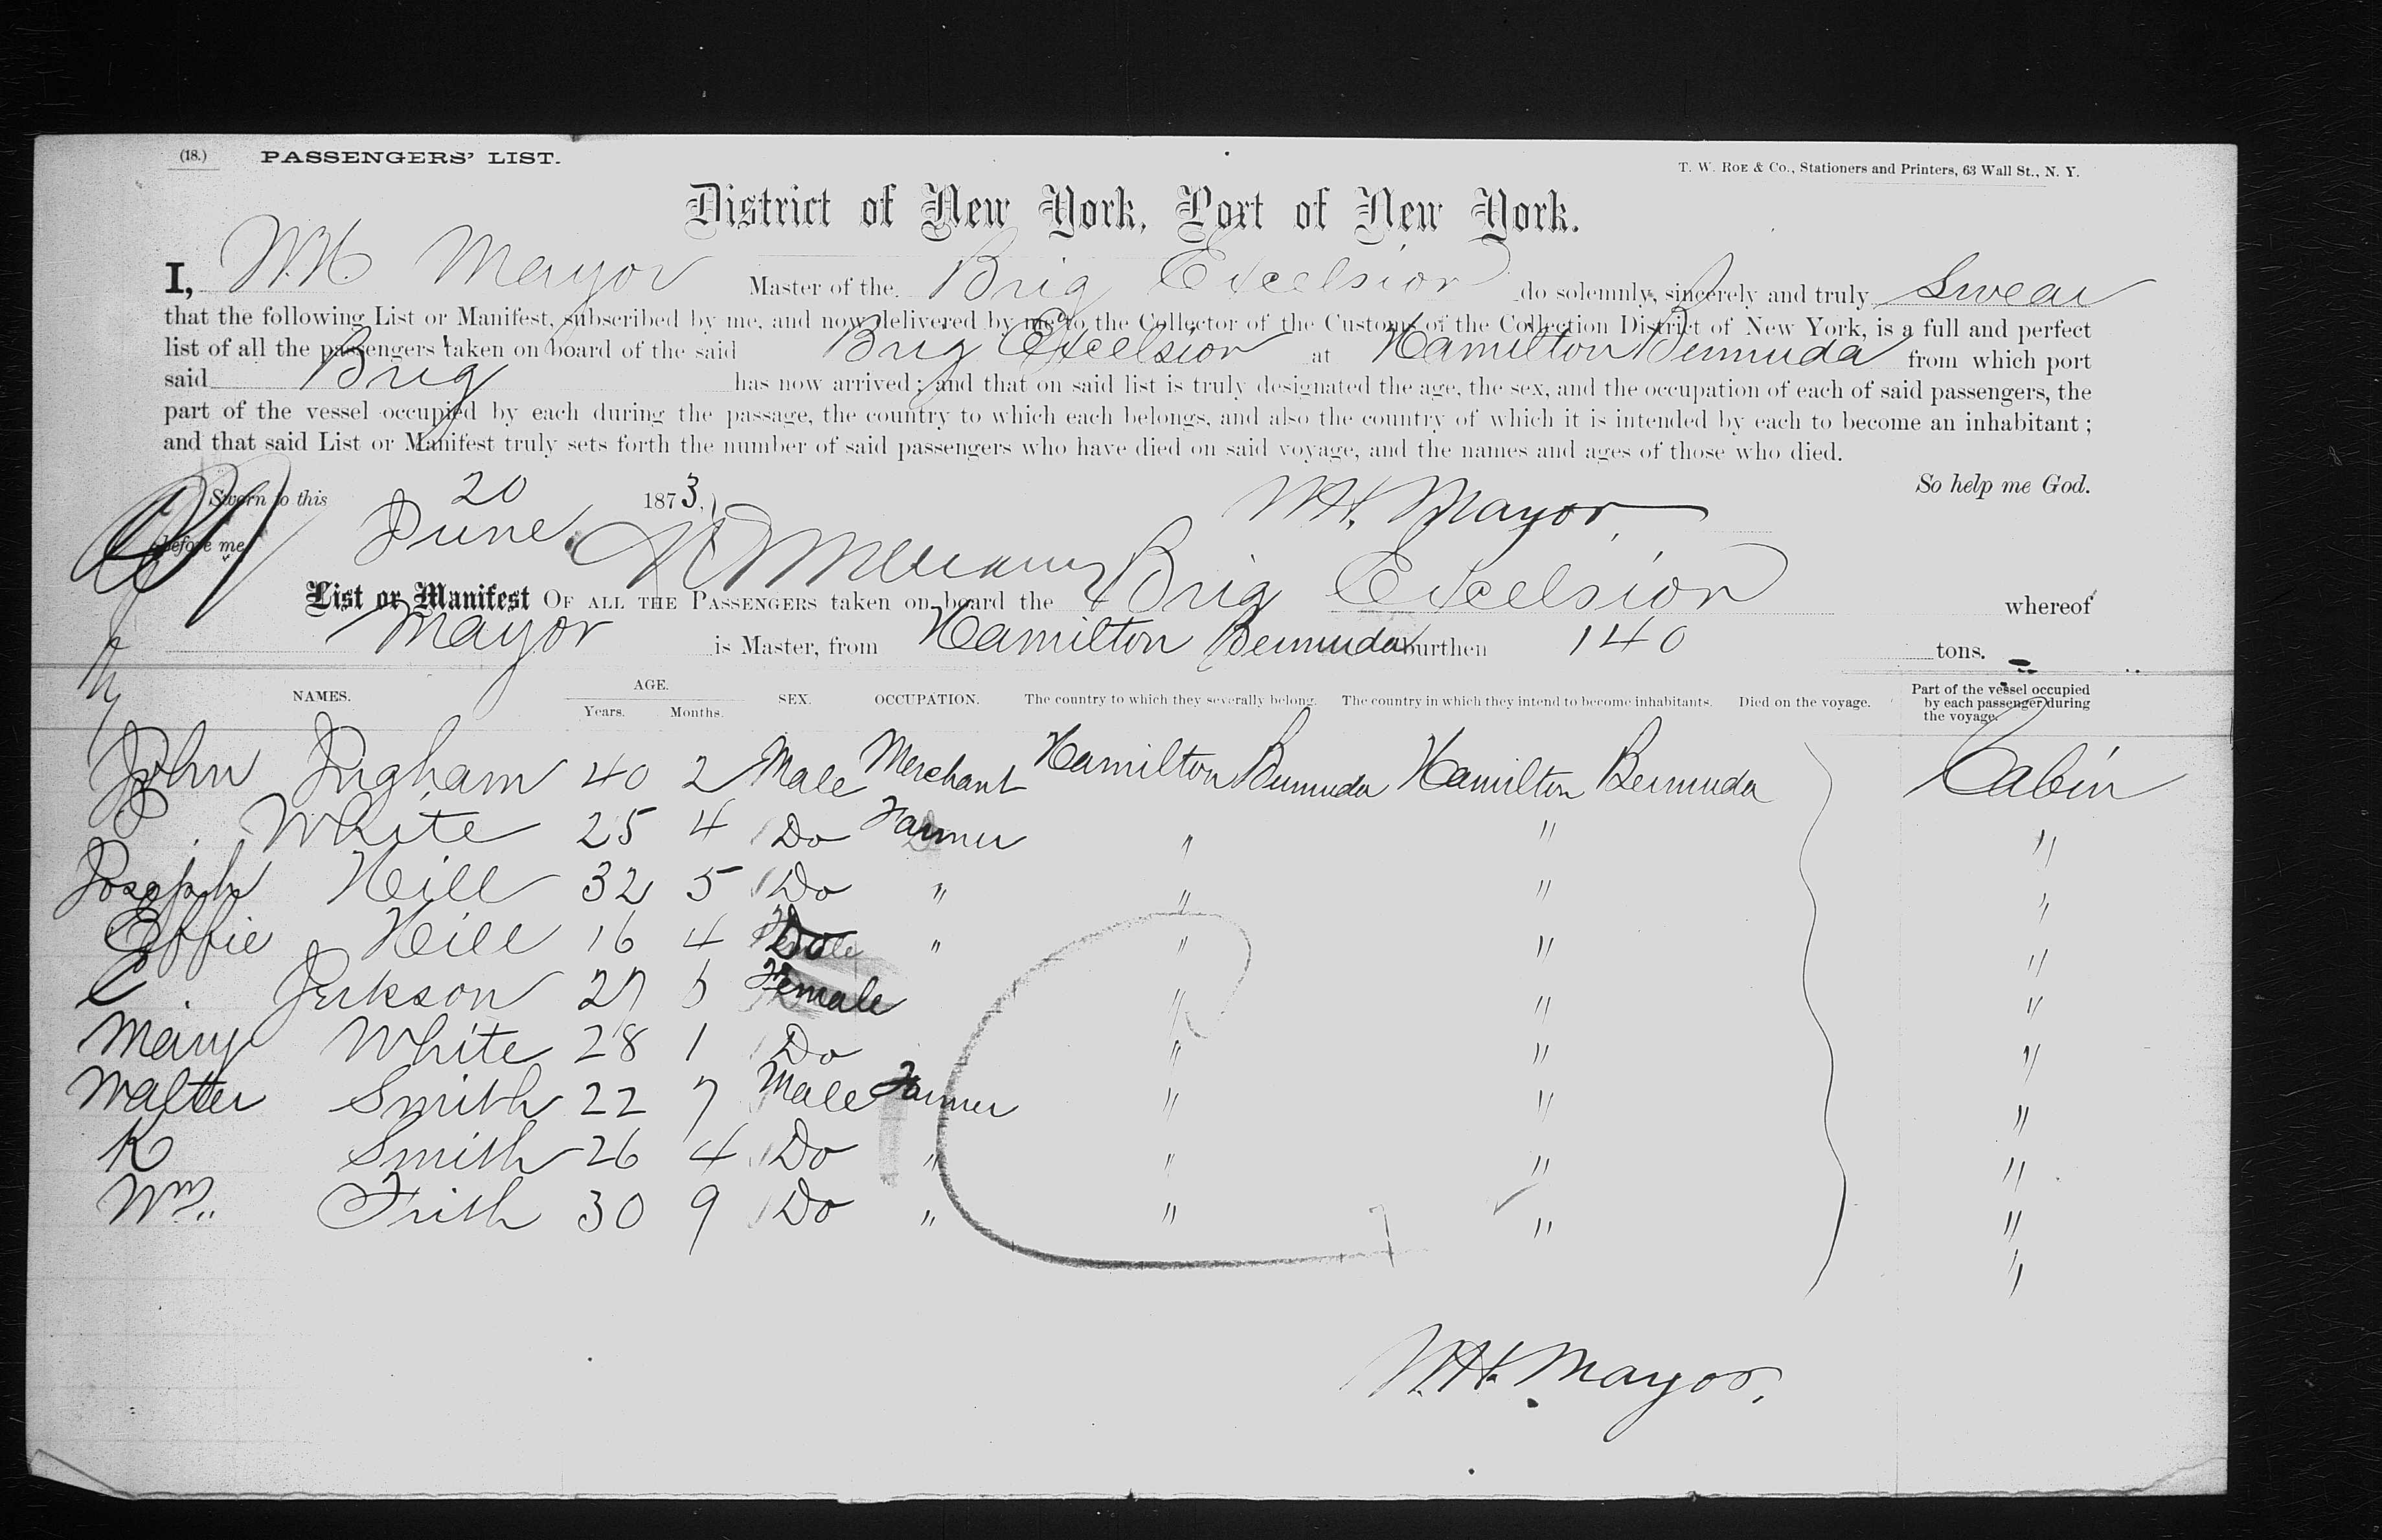 (18.) PASSENGERS' LIST. T. W. ROE & CO., Stationers and Printers, 63 Wall St., N. Y.
District of New York, Port of New York.
I, W.H. Mayor Master of the Brig Excelsior do solemnly, sincerely and truly Swear
that the following List or Manifest, subscribed by me, and now delivered by me to the Collector of the Customs of the Collection District of New York, is a full and perfect
list of all the passengers taken on board of the said Brig Excelsior at Hamilton Bermuda from which port
said Brig has now arrived; and that on said list is truly designated the age, the sex, and the occupation of each of said passengers, the
part of the vessel occupied by each during the passage, the country to which each belongs, and also the country of which it is intended by each to become an inhabitant;
and that said List or Manifest truly sets forth the number of said passengers who have died on said voyage, and the names and ages of those who died.
So help me God.
Sworn to this 20 1873. W.H. Mayor
before me June
List or Manifest OF ALL THE PASSENGERS taken on board the Brig Excelsior whereof
Mayor is Master, from Hamilton Bermuda burthen 140 tons.
NAMES. AGE. Years. Months. SEX. OCCUPATION. The country to which they severally belong. The country in which they intend to become inhabitants. Died on the voyage. Part of the vessel occupied by each passenger during the voyage.
John Ingham 40 2 Male Merchant Hamilton Bermuda Hamilton Bermuda Cabin
White 25 4 Do Farmer " " "
Joseph Hill 32 5 Do " " " "
Effie Hill 16 4 " " " "
C. Jerkson 27 5 Female " " "
Mary White 28 1 Do " " "
Walter Smith 22 7 Male Farmer " " "
R Smith 26 4 Do " " " "
Wm. Frith 30 9 Do " " " "
"
W.H. Mayor.